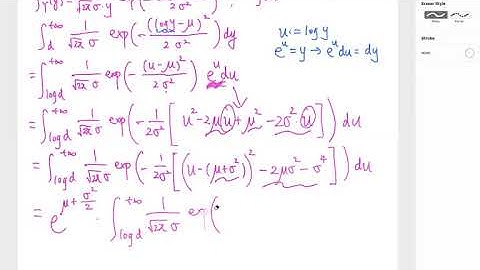 ∫_d^{+∞} 1/(√2π σ) exp(-(log y - μ)²/(2σ²)) dy
u = log y
e^u = y → e^u du = dy
= ∫_{log d}^{+∞} 1/(√2π σ) exp(-(u-μ)²/(2σ²)) e^u du
= ∫_{log d}^{+∞} 1/(√2π σ) exp(-1/(2σ²) [u² - 2μu + μ² - 2σ²·u]) du
= ∫_{log d}^{+∞} 1/(√2π σ) exp(-1/(2σ²) [(u-(μ+σ²))² - 2μσ² - σ⁴]) du
= e^{μ+σ²/2} · ∫_{log d}^{+∞} 1/(√2π σ) exp(
Eraser Style
Stroke